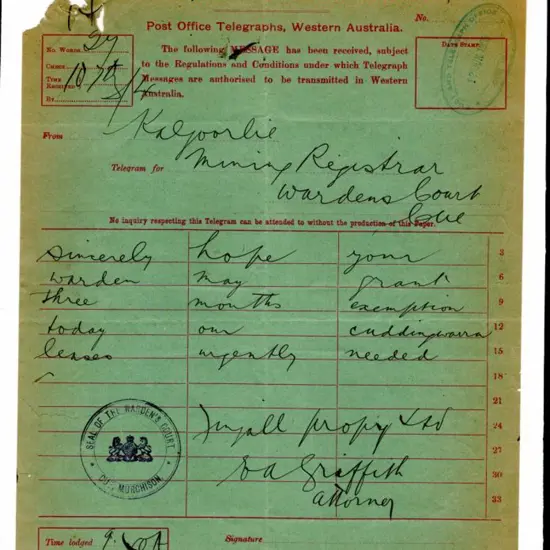 No.
Post Office Telegraphs, Western Australia.
No. Words 29
The following MESSAGE has been received, subject
to the Regulations and Conditions under which Telegraph
Messages are authorised to be transmitted in Western
Australia.
Time
Received
By
DATE STAMP
From Kalgoorlie
Telegram for Mining Registrar
Wardens Court
Cue
No inquiry respecting this Telegram can be attended to without the production of this Paper.
sincerely hope your 3
warden may grant 6
three months exemption 9
today our cuddingwarra 12
leases urgently needed 15
18
propy Ltd
24
27
Griffith 30
attorney 33
SEAL OF THE WARDEN'S COURT
CUE MURCHISON
Time lodged 9
Signature